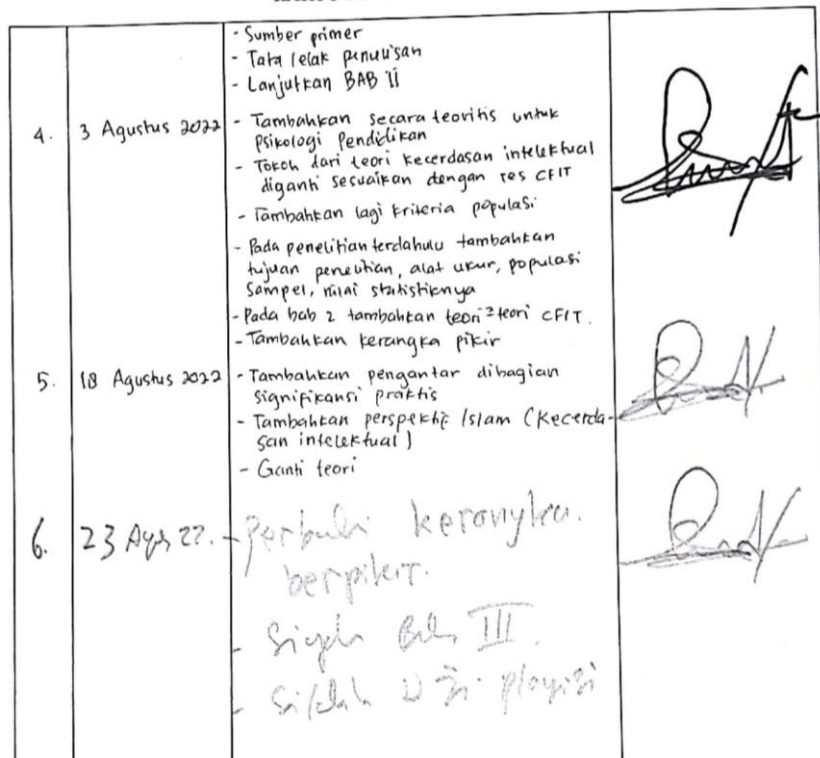 - Sumber primer
- Tata letak penulisan
- Lanjutkan BAB II
4.
3 Agustus 2022
- Tambahkan secara teoritis untuk
Psikologi Pendidikan
- Tokoh dari teori kecerdasan intelektual
diganti sesuaikan dengan tes CFIT
- Tambahkan lagi kriteria populasi
- Pada penelitian terdahulu tambahkan
tujuan penelitian, alat ukur, populasi
sampel, nilai statistiknya
- Pada bab 2 tambahkan teori²teori CFIT.
- Tambahkan kerangka pikir
5.
18 Agustus 2022
- Tambahkan pengantar dibagian
signifikansi praktis
- Tambahkan perspektif Islam (Kecerda-
san intelektual)
- Ganti teori
6.
23 Ags 22.
- Perbaiki kerangka
berpikir.
- Bab III.
-